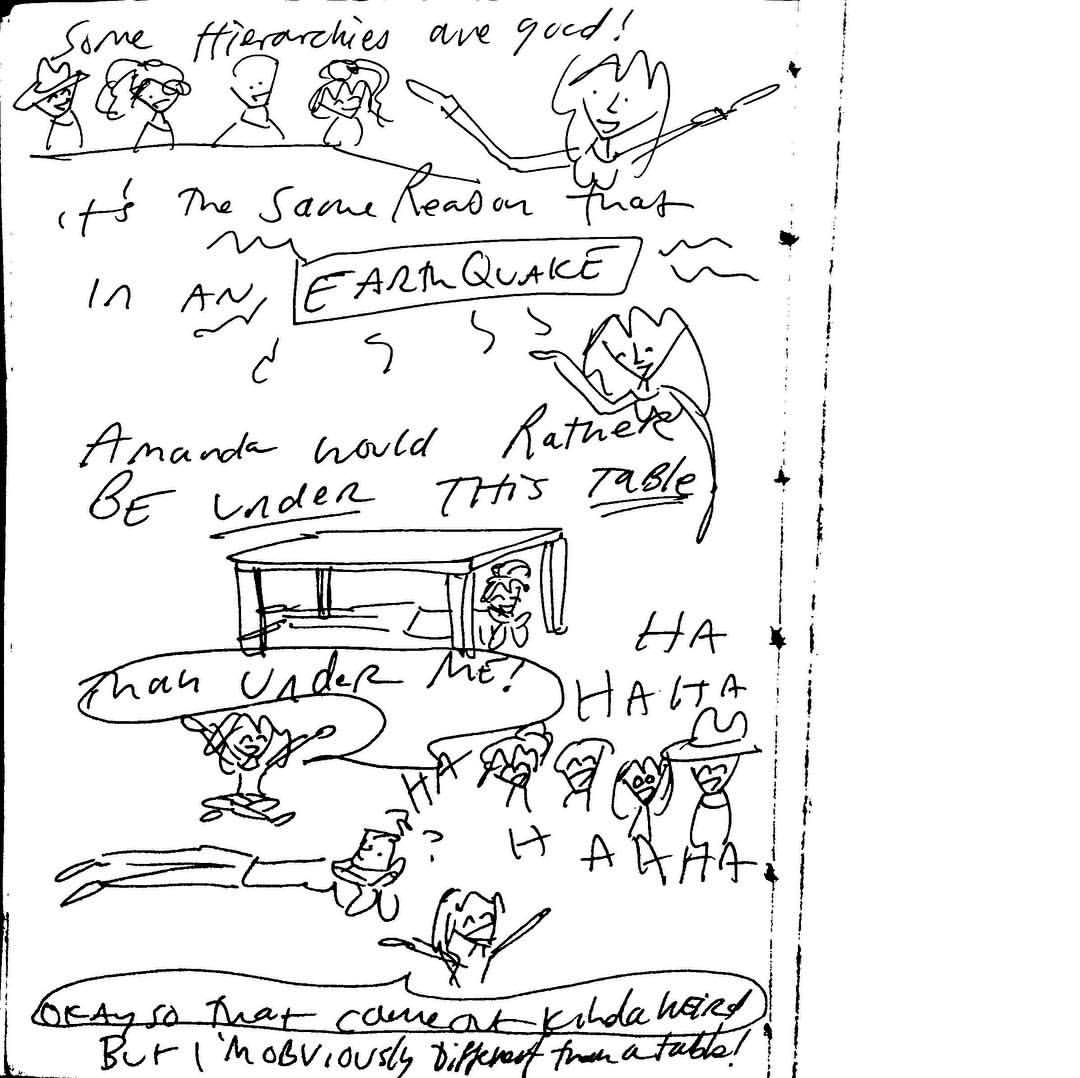 Some Hierarchies are good!
it's The Same Reason that
IN AN EARThQUAKE
Amanda would Rather
BE UndER THis TaBle
Than UndeR ME!
HA
HA HA
HA
H A A HA
?
OKAY so that came out kinda WEIRd
But I'M OBVIOUSLY Different than a table!